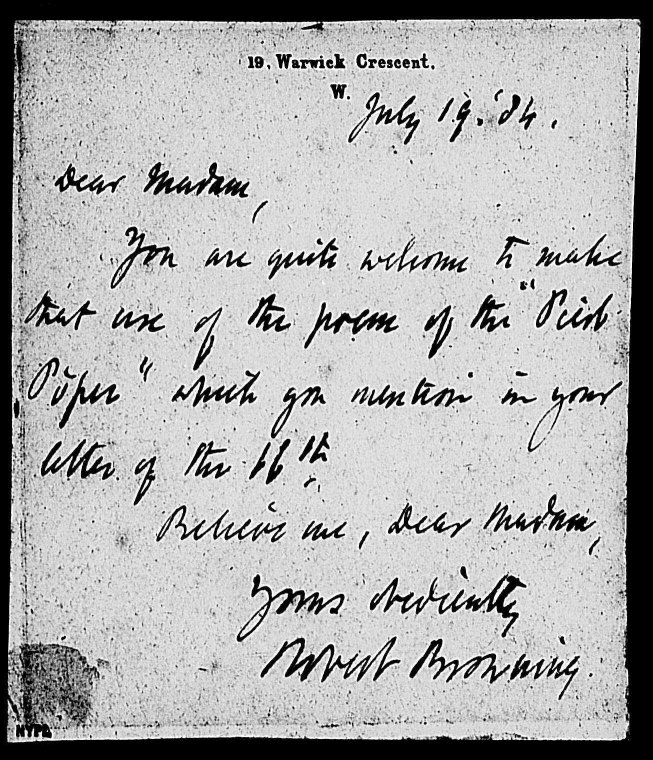 19, Warwick Crescent,
W.
July 19. '84.
Dear Madam,
You are quite welcome to make
that use of the poem of the "Pied
Piper" which you mention in your
letter of the 16th.
Believe me, Dear Madam,
Yours obediently
Robert Browning.
NYPL